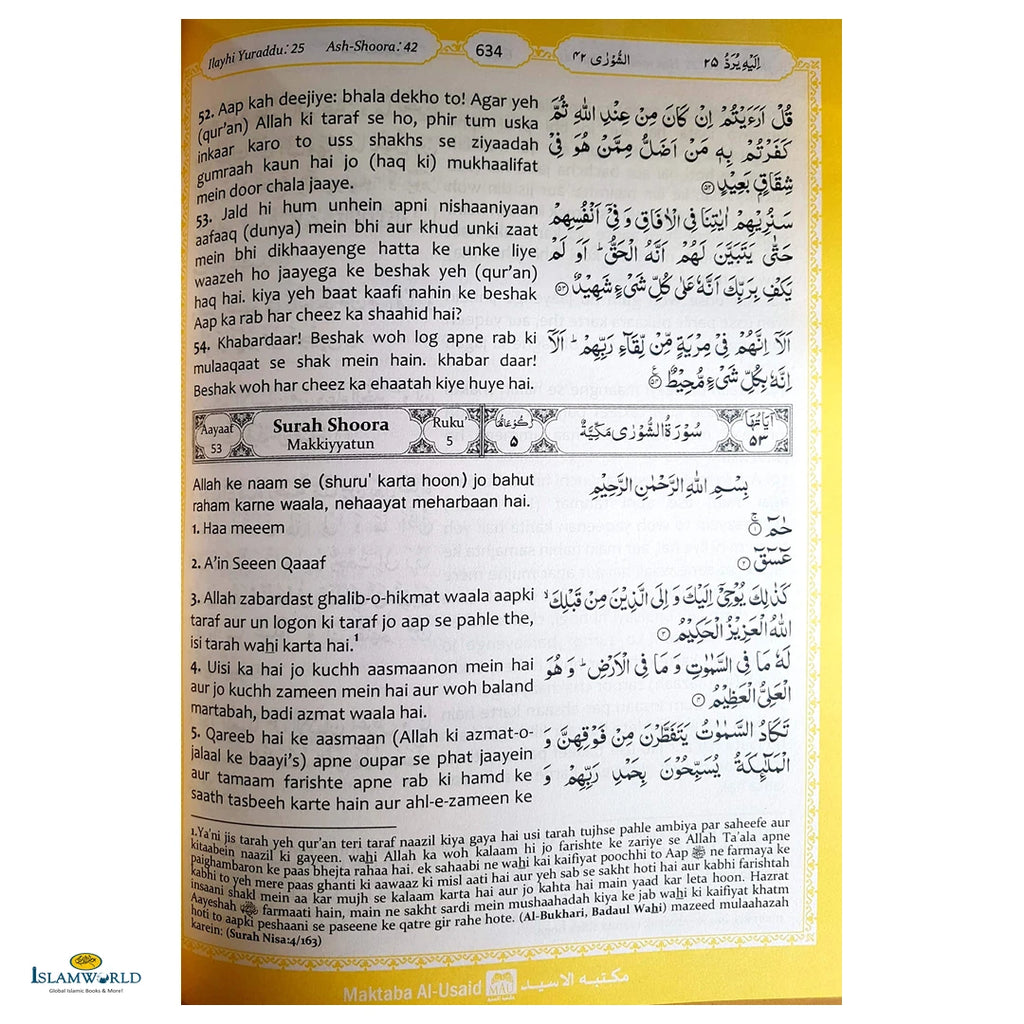 Ilayhi Yuraddu: 25 Ash-Shoora: 42 634 الشُّوْرٰى ۴۲ اِلَيْهِ يُرَدُّ ۲۵
52. Aap kah deejiye: bhala dekho to! Agar yeh
(qur'an) Allah ki taraf se ho, phir tum uska
inkaar karo to uss shakhs se ziyaadah
gumraah kaun hai jo (haq ki) mukhaalifat
mein door chala jaaye.
قُلْ اَرَءَيْتُمْ اِنْ كَانَ مِنْ عِنْدِ اللّٰهِ ثُمَّ
كَفَرْتُمْ بِهٖ مَنْ اَضَلُّ مِمَّنْ هُوَ فِيْ
شِقَاقٍۭ بَعِيْدٍ ۵۲
53. Jald hi hum unhein apni nishaaniyaan
aafaaq (dunya) mein bhi aur khud unki zaat
mein bhi dikhaayenge hatta ke unke liye
waazeh ho jaayega ke beshak yeh (qur'an)
haq hai. kiya yeh baat kaafi nahin ke beshak
Aap ka rab har cheez ka shaahid hai?
سَنُرِيْهِمْ اٰيٰتِنَا فِي الْاٰفَاقِ وَ فِيْٓ اَنْفُسِهِمْ
حَتّٰى يَتَبَيَّنَ لَهُمْ اَنَّهُ الْحَقُّ ؕ اَوَ لَمْ
يَكْفِ بِرَبِّكَ اَنَّهٗ عَلٰى كُلِّ شَيْءٍ شَهِيْدٌ ۵۳
54. Khabardaar! Beshak woh log apne rab ki
mulaaqaat se shak mein hain. khabar daar!
Beshak woh har cheez ka ehaatah kiye huye hai.
اَلَآ اِنَّهُمْ فِيْ مِرْيَةٍ مِّنْ لِّقَآءِ رَبِّهِمْ ؕ اَلَآ
اِنَّهٗ بِكُلِّ شَيْءٍ مُّحِيْطٌ ۵۴
Aayaat 53 Surah Shoora Makkiyyatun Ruku' 5 رُكُوْعَاتُهَا ۵ سُوْرَةُ الشُّوْرٰى مَكِّيَّةٌ اٰيَاتُهَا ۵۳
Allah ke naam se (shuru' karta hoon) jo bahut
raham karne waala, nehaayat meharbaan hai.
بِسْمِ اللّٰهِ الرَّحْمٰنِ الرَّحِيْمِ
1. Haa meeem
حٰمٓ ۱
2. A'in Seeen Qaaaf
عٓسٓقٓ ۲
3. Allah zabardast ghalib-o-hikmat waala aapki
taraf aur un logon ki taraf jo aap se pahle the,
isi tarah wahi karta hai.1
كَذٰلِكَ يُوْحِيْٓ اِلَيْكَ وَ اِلَى الَّذِيْنَ مِنْ قَبْلِكَ ۙ
اللّٰهُ الْعَزِيْزُ الْحَكِيْمُ ۳
4. Uisi ka hai jo kuchh aasmaanon mein hai
aur jo kuchh zameen mein hai aur woh baland
martabah, badi azmat waala hai.
لَهٗ مَا فِي السَّمٰوٰتِ وَ مَا فِي الْاَرْضِ ؕ وَ هُوَ
الْعَلِيُّ الْعَظِيْمُ ۴
5. Qareeb hai ke aasmaan (Allah ki azmat-o-
jalaal ke baayi's) apne oupar se phat jaayein
aur tamaam farishte apne rab ki hamd ke
saath tasbeeh karte hain aur ahl-e-zameen ke
تَكَادُ السَّمٰوٰتُ يَتَفَطَّرْنَ مِنْ فَوْقِهِنَّ وَ
الْمَلٰٓئِكَةُ يُسَبِّحُوْنَ بِحَمْدِ رَبِّهِمْ وَ
1.Ya'ni jis tarah yeh qur'an teri taraf naazil kiya gaya hai usi tarah tujhse pahle ambiya par saheefe aur
kitaabein naazil ki gayeen. wahi Allah ka woh kalaam hi jo farishte ke zariye se Allah Ta'ala apne
paighambaron ke paas bhejta rahaa hai. ek sahaabi ne wahi kai kaifiyat poochhi to Aap ﷺ ne farmaya ke
kabhi to yeh mere paas ghanti ki aawaaz ki misl aati hai aur yeh sab se sakht hoti hai aur kabhi farishtah
insaani shakl mein aa kar mujh se kalaam karta hai aur jo kahta hai main yaad kar leta hoon. Hazrat
Aayeshah farmaati hain, main ne sakht sardi mein mushaahadah kiya ke jab wahi ki kaifiyat khatm
hoti to aapki peshaani se paseene ke qatre gir rahe hote. (Al-Bukhari, Badaul Wahi) mazeed mulaahazah
karein: (Surah Nisa:4/163)
Maktaba Al-Usaid MAU مكتبه الاسيد
ISLAMWORLD
Global Islamic Books & More!